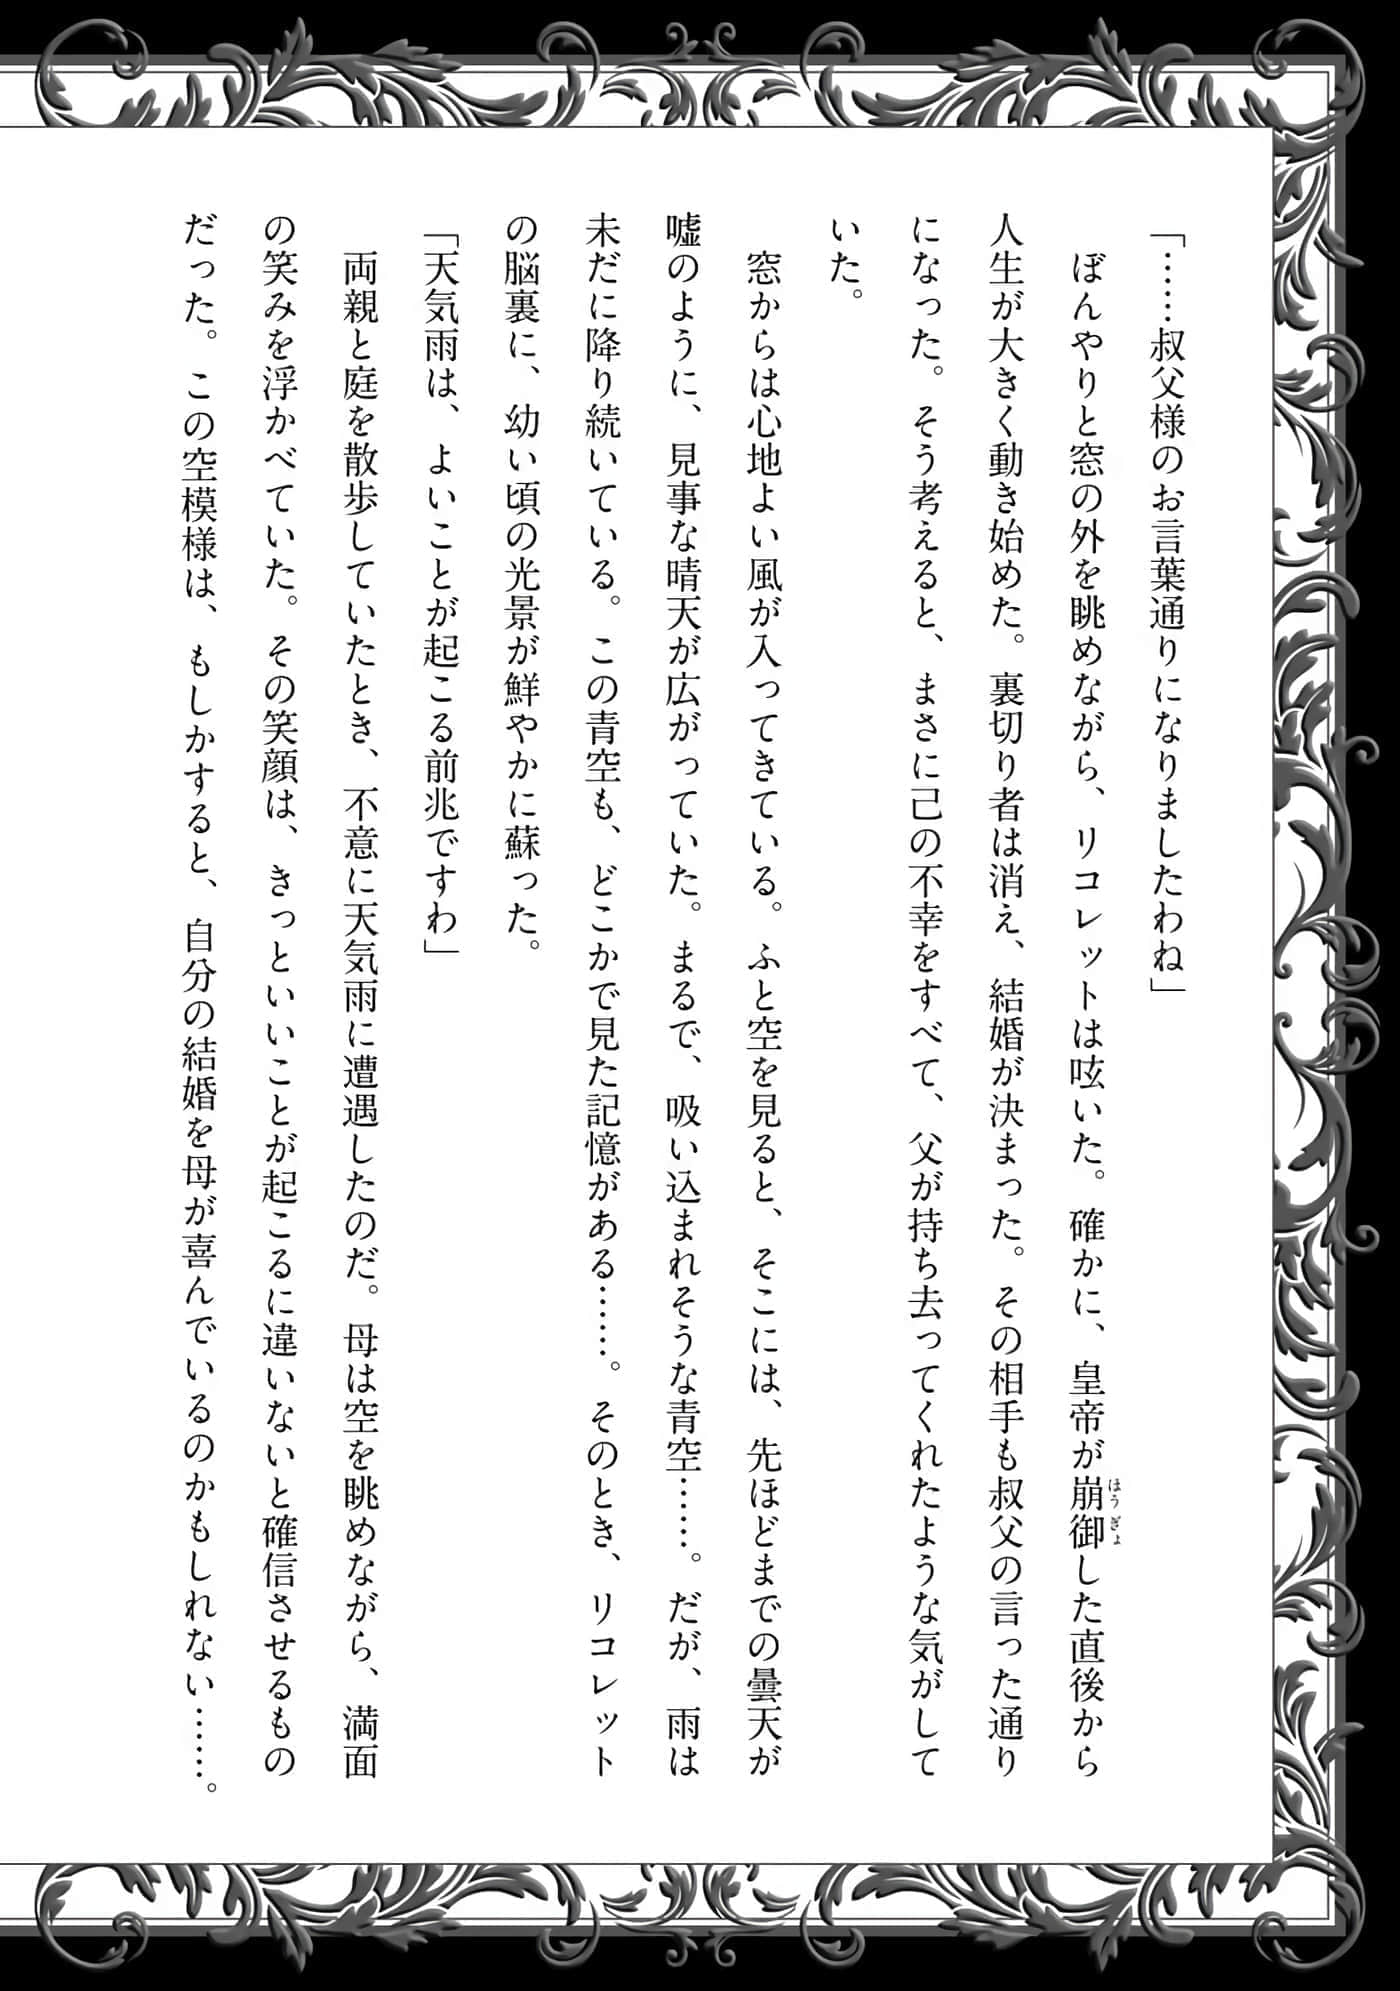 「……叔父様のお言葉通りになりましたわね」
ぼんやりと窓の外を眺めながら、リコレットは呟いた。確かに、皇帝が崩御した直後から
ほうぎょ
人生が大きく動き始めた。裏切り者は消え、結婚が決まった。その相手も叔父の言った通り
になった。そう考えると、まさに己の不幸をすべて、父が持ち去ってくれたような気がして
いた。
窓からは心地よい風が入ってきている。ふと空を見ると、そこには、先ほどまでの曇天が
嘘のように、見事な晴天が広がっていた。まるで、吸い込まれそうな青空……。だが、雨は
未だに降り続いている。この青空も、どこかで見た記憶がある……。そのとき、リコレット
の脳裏に、幼い頃の光景が鮮やかに蘇った。
「天気雨は、よいことが起こる前兆ですわ」
両親と庭を散歩していたとき、不意に天気雨に遭遇したのだ。母は空を眺めながら、満面
の笑みを浮かべていた。その笑顔は、きっといいことが起こるに違いないと確信させるもの
だった。この空模様は、もしかすると、自分の結婚を母が喜んでいるのかもしれない……。